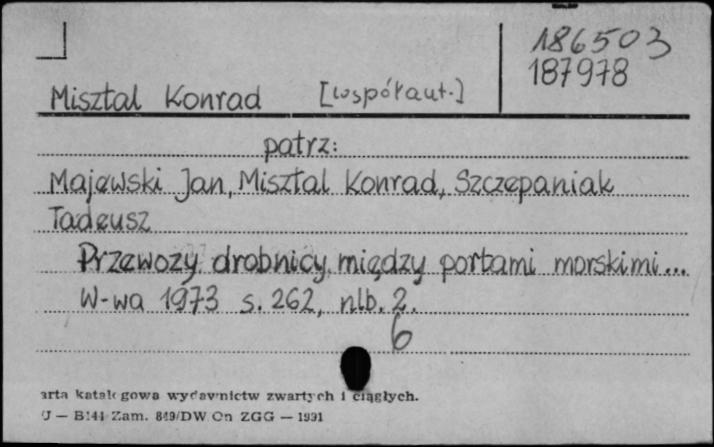 186503
187978
Misztal Konrad [współaut.]
patrz:
Majewski Jan, Misztal Konrad, Szczepaniak
Tadeusz
Przewozy drobnicy między portami morskimi...
W-wa 1973 s. 262, nlb. 2.
6
arta katalogowa wydawnictw zwartych i ciągłych.
U — B144 Zam. 849/DW Cn ZGG — 1991